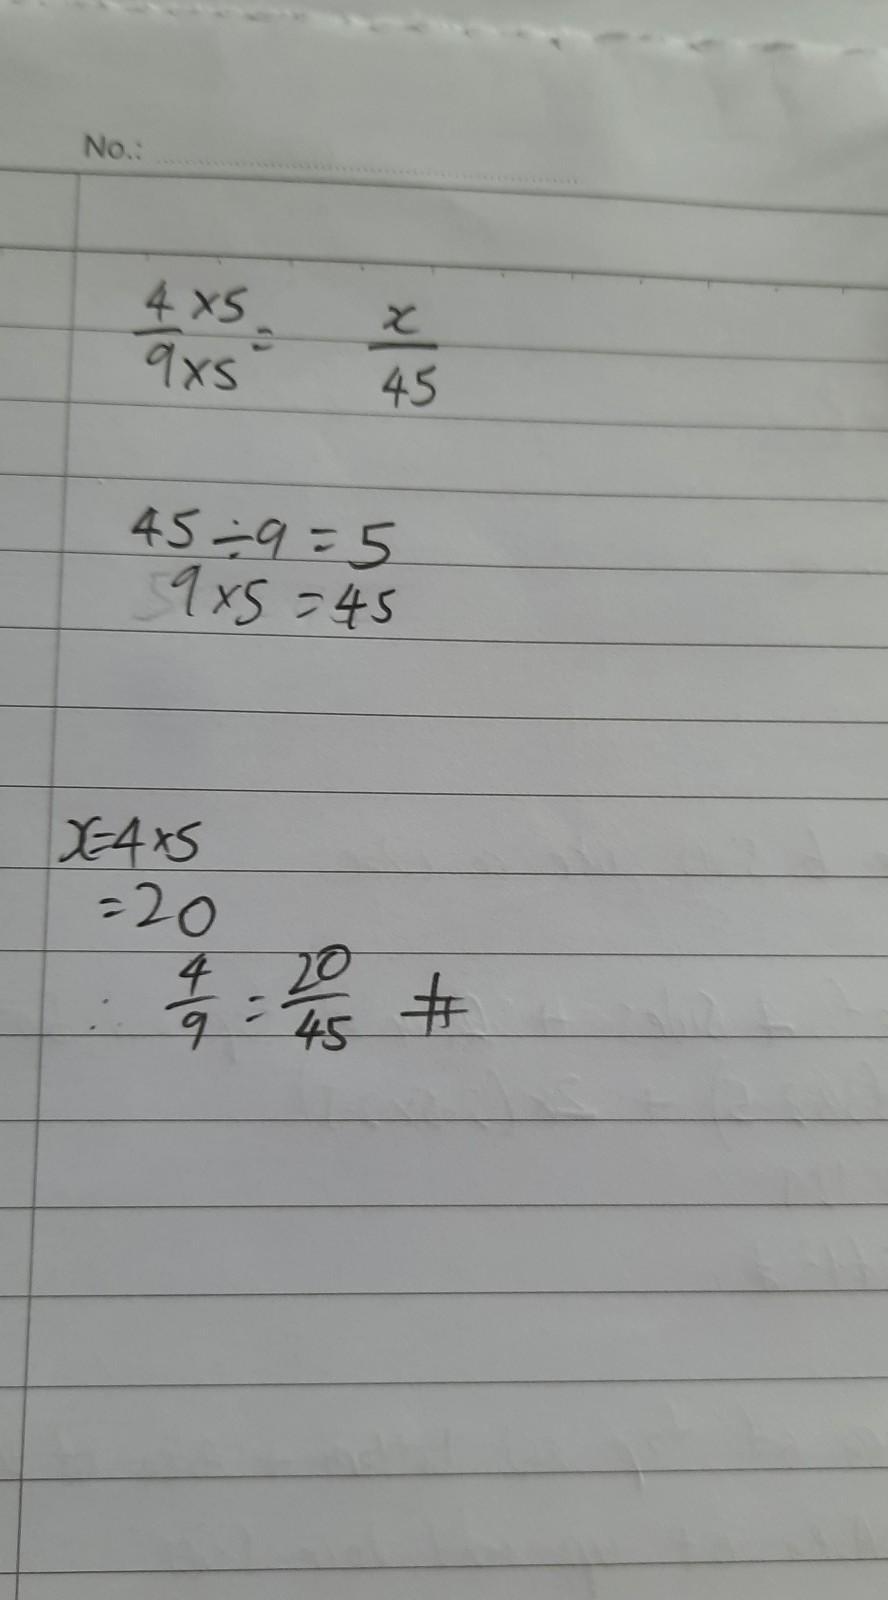 No.:
4×5/9×5 = x/45
45÷9=5
9×5=45
x=4×5
=20
∴ 4/9 = 20/45 #